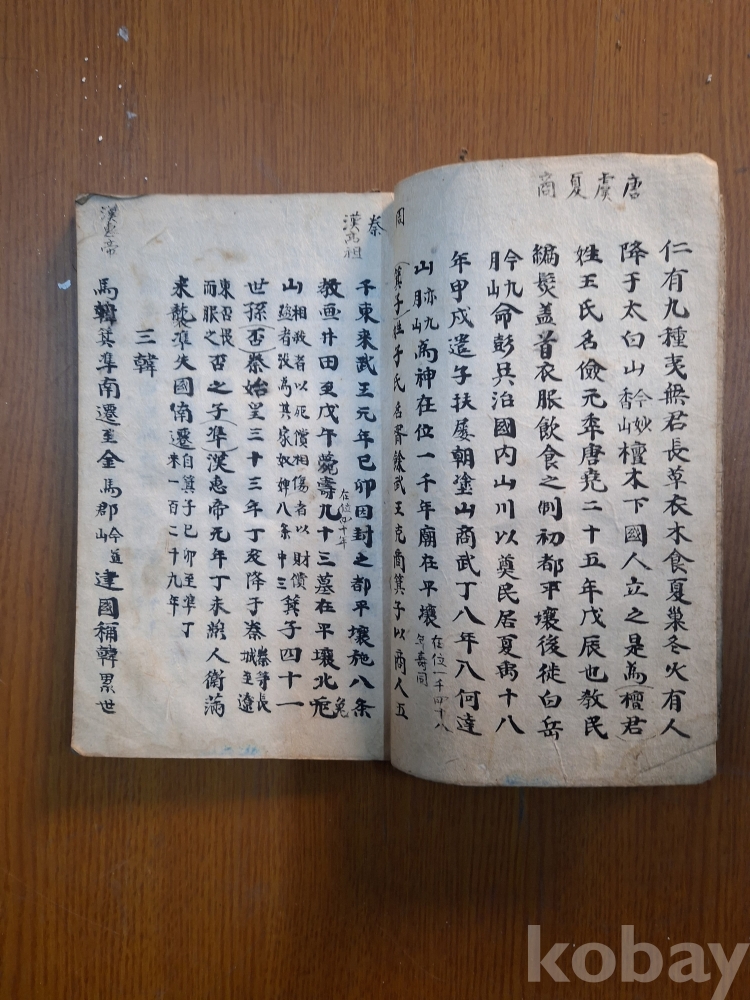 唐虞夏商
仁有九種夷無君長草衣木食夏巢冬火有人
降于太白山今妙香山檀木下國人立之是為檀君
姓王氏名儉元年唐堯二十五年戊辰也教民
編髮盖首衣服飮食之制初都平壤後徙白岳
今九月山命彭吳治國內山川以奠民居夏禹十八
年甲戌遣子扶婁朝塗山商武丁八年入阿達
山亦九月山為神在位一千年廟在平壤在位一千四十八年壽同
周
箕子姓子氏名胥餘武王克商箕子以商人五
秦
漢高祖
漢惠帝
千東來武王元年己卯因封之都平壤施八条
教画井田至戊午薨壽九十三墓在平壤北兎
在位四十年
山相殺者以死償相傷者以財償相盜者沒為其家奴婢八条中三箕子四十一
世孫否秦始皇三十三年丁亥降于秦秦築長城至遼
東否畏而服之否之子準漢惠帝元年丁未燕人衛滿
來襲準失國南遷自箕子己卯至準丁未一百二十九年
三韓
馬韓箕準南遷至金馬郡今益山建國稱韓累世
kobay